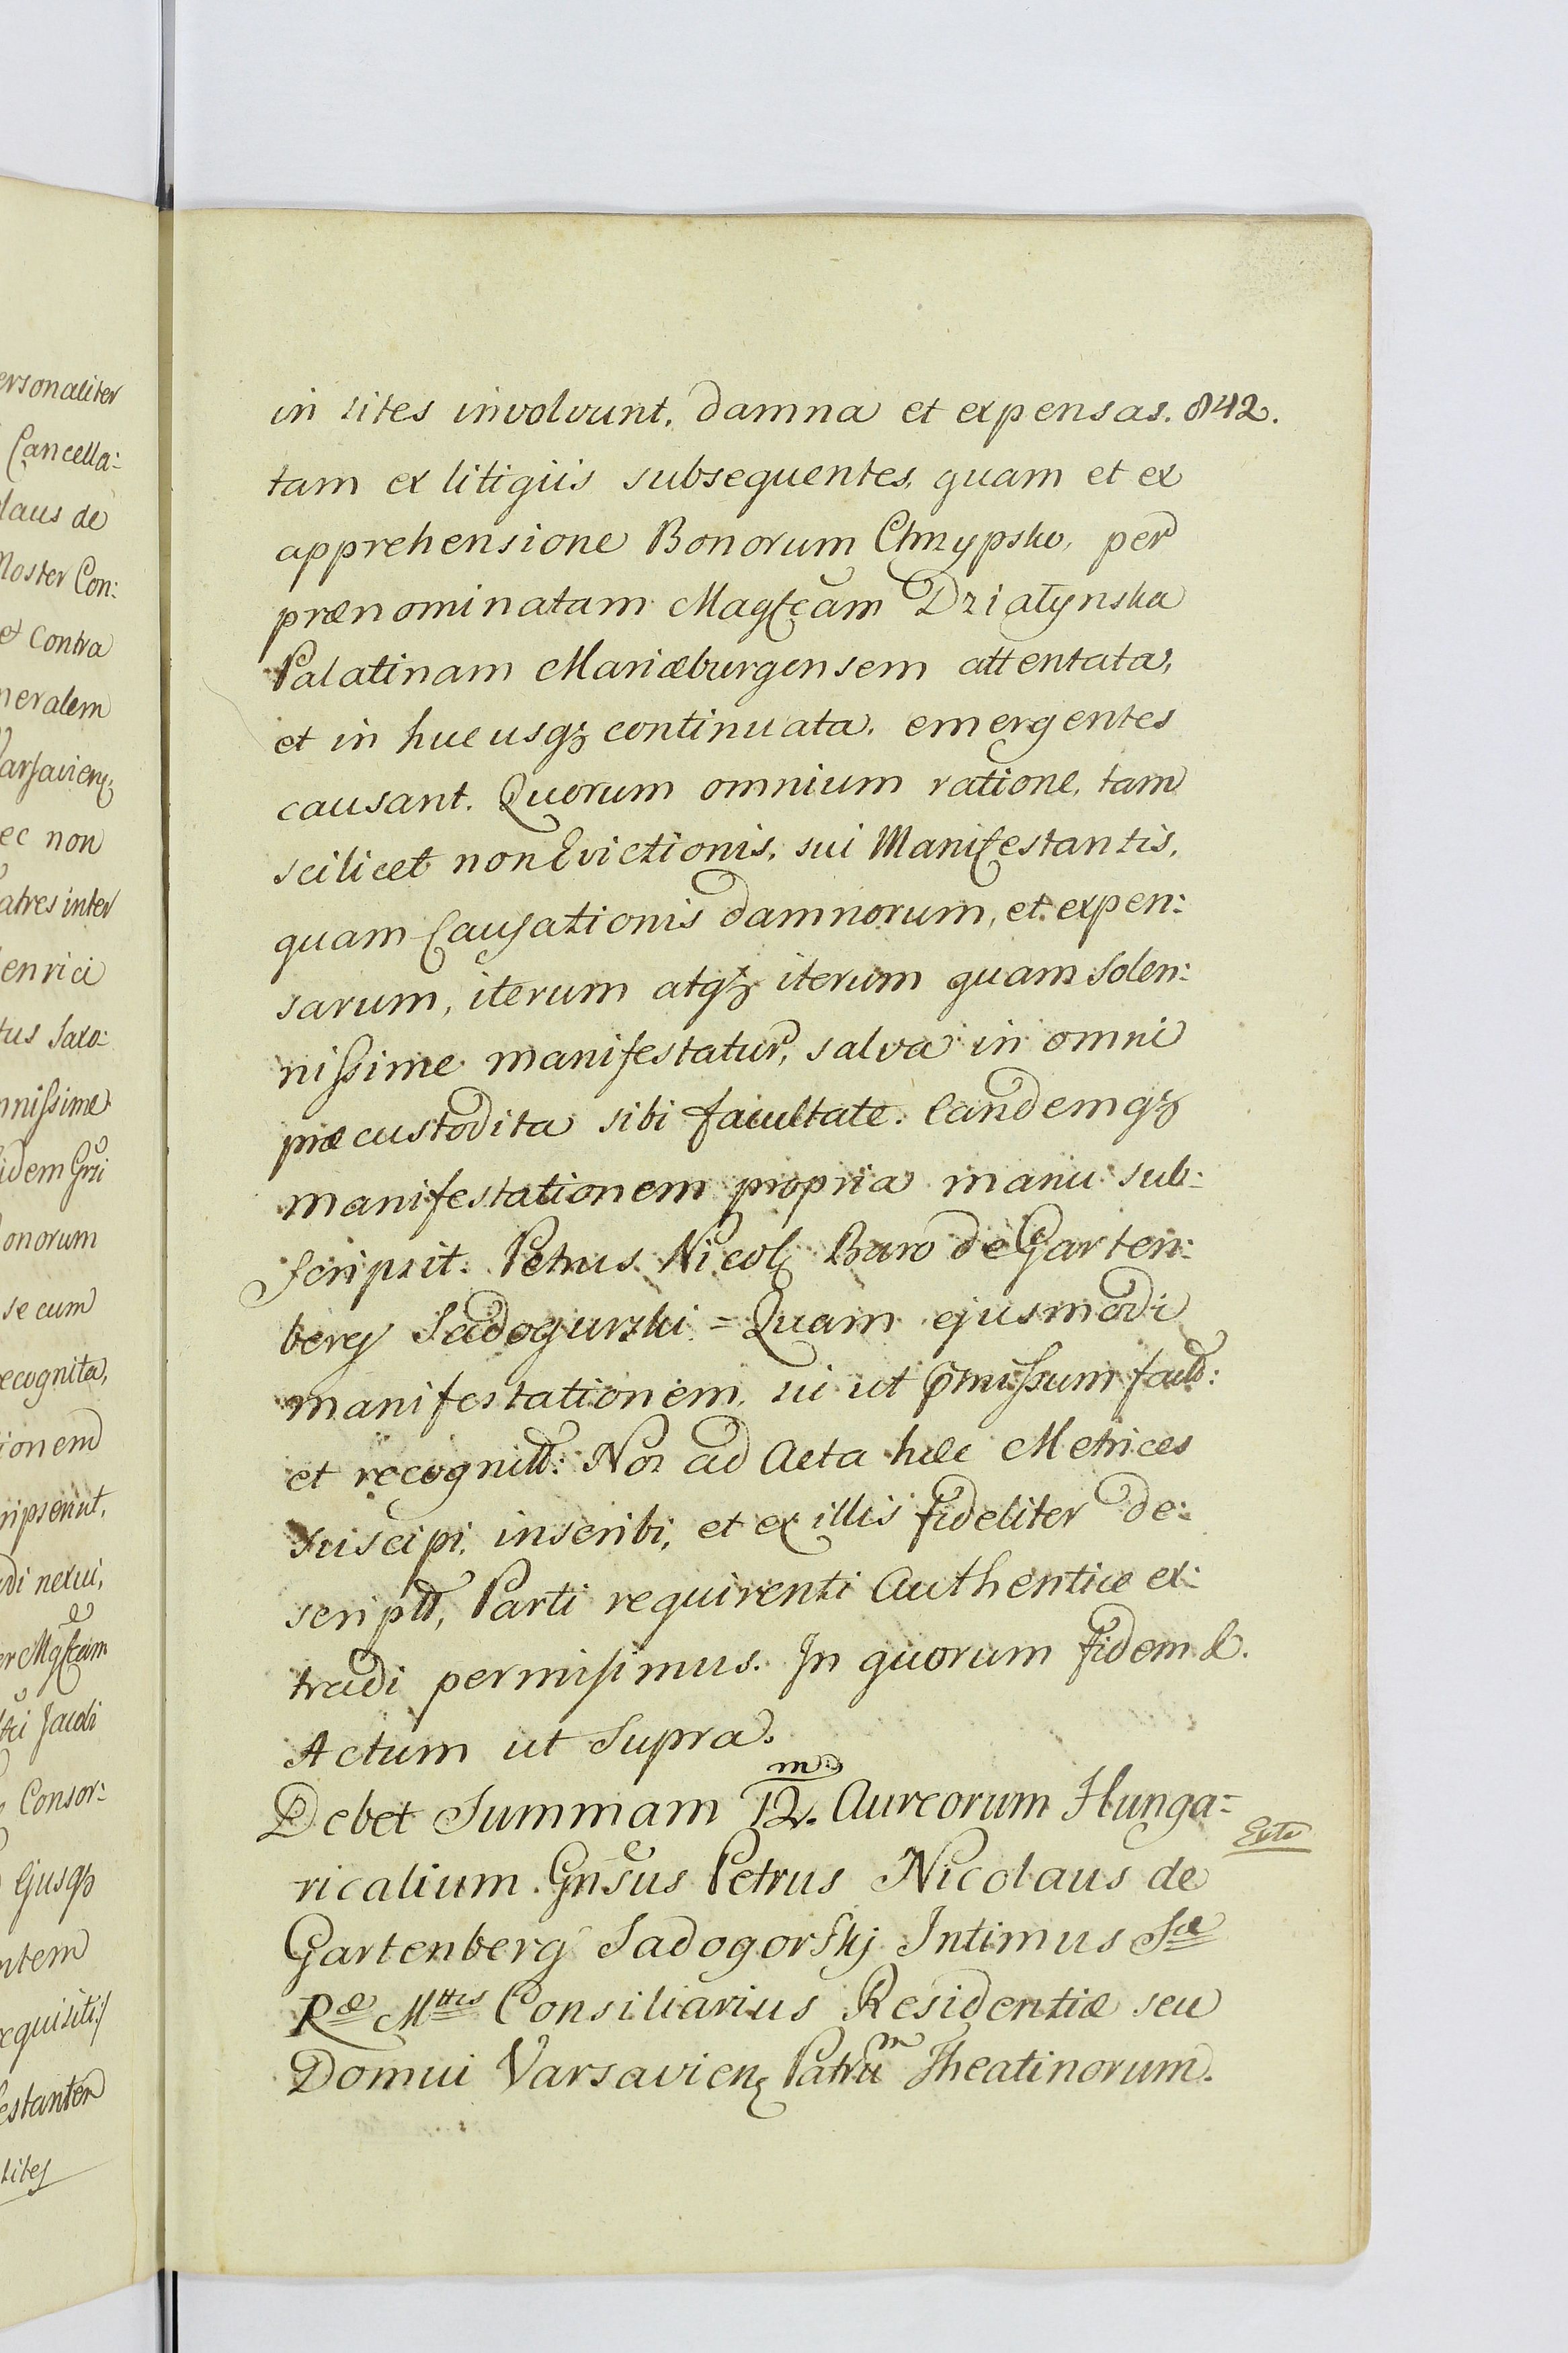 ersonaliter
Cancella:
laus de
Noster Con:
et contra
neralem
ec non
atres inter
enrici
tus Saxo:
nnissime
idem Gni
onorum
se cum
recognita,
ionem
ripserint,
Consor:
Ejusqz
ntem
requisiti:/
estantem
lites
in lites involvunt, damna et expensas. 842.
tam ex litigiis subsequentes, quam et ex
apprehensione Bonorum Chrzypsko, per
prænominatam Magfcam Działynska
Palatinam Mariæburgensem attentata,
et in hucusqz continuata, emergentes
causant. Quorum omnium ratione, tam
scilicet non Evictionis, sui Manifestantis,
quam Causationis damnorum, et expen:
sarum, iterum atqz iterum quam Solen:
nissime manifestatur, salva in omni
præcustodita sibi facultate. Eandemqz
manifestationem propria manu sub:
scripsit. Petrus Nicol Baro de Garten:
berg Sadogurski = Quam ejusmodi
manifestationem, si ut pmissum fact:
et recognitt: Nos ad Acta hæc Metrices
suscipi, inscribi, et ex illis fideliter de:
scriptt, Parti requirenti Authentice ex:
tradi permisimus. In quorum fidem &.
Actum ut Supra.
Debet Summam 12.m Aureorum Hunga=
ricalium Gnsus Petrus Nicolaus de
Gartenberg Sadogorskj Intimus Sæ
Ræ Mttis Consiliarius Residentiæ seu
Domui Varsavien Patrum Theatinorum.